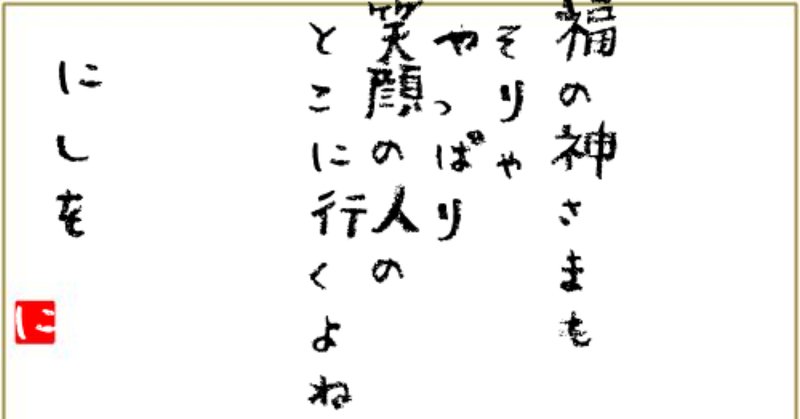 福の神さまも
そりゃ
やっぱり
笑顔の人の
とこに行くよね
にしを
に